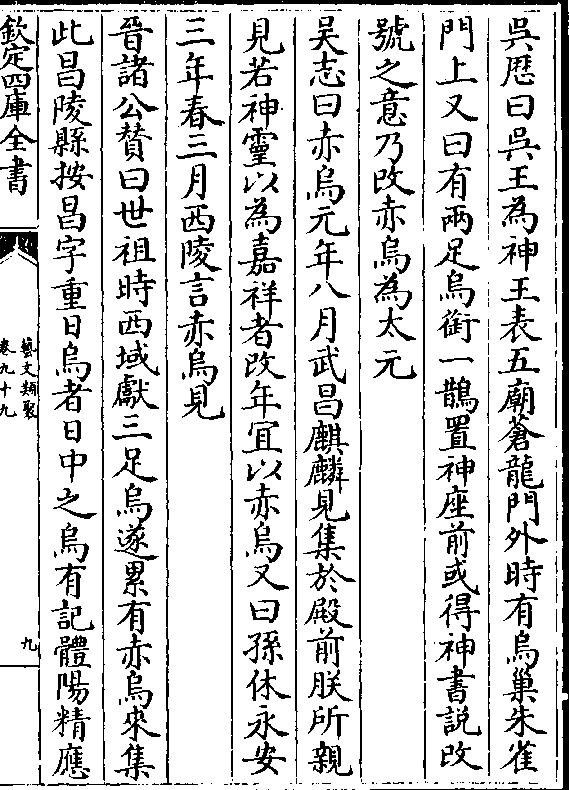 吳厯曰吳王為神王表五廟蒼龍門外時有烏巢朱雀
門上又曰有兩足烏銜一鵲置神座前或得神書説改
號之意乃改赤烏為太元
吴志曰赤烏元年八月武昌麒麟見集於殿前朕所親
見若神靈以為嘉祥者改年宜以赤烏又曰孫休永安
三年春三月西陵言赤烏見
晉諸公賛曰世祖時西域獻三足烏遂累有赤烏來集
此昌陵縣按昌字重日烏者日中之烏有記體陽精應
欽定四庫全書
藝文類聚
卷九十九
九